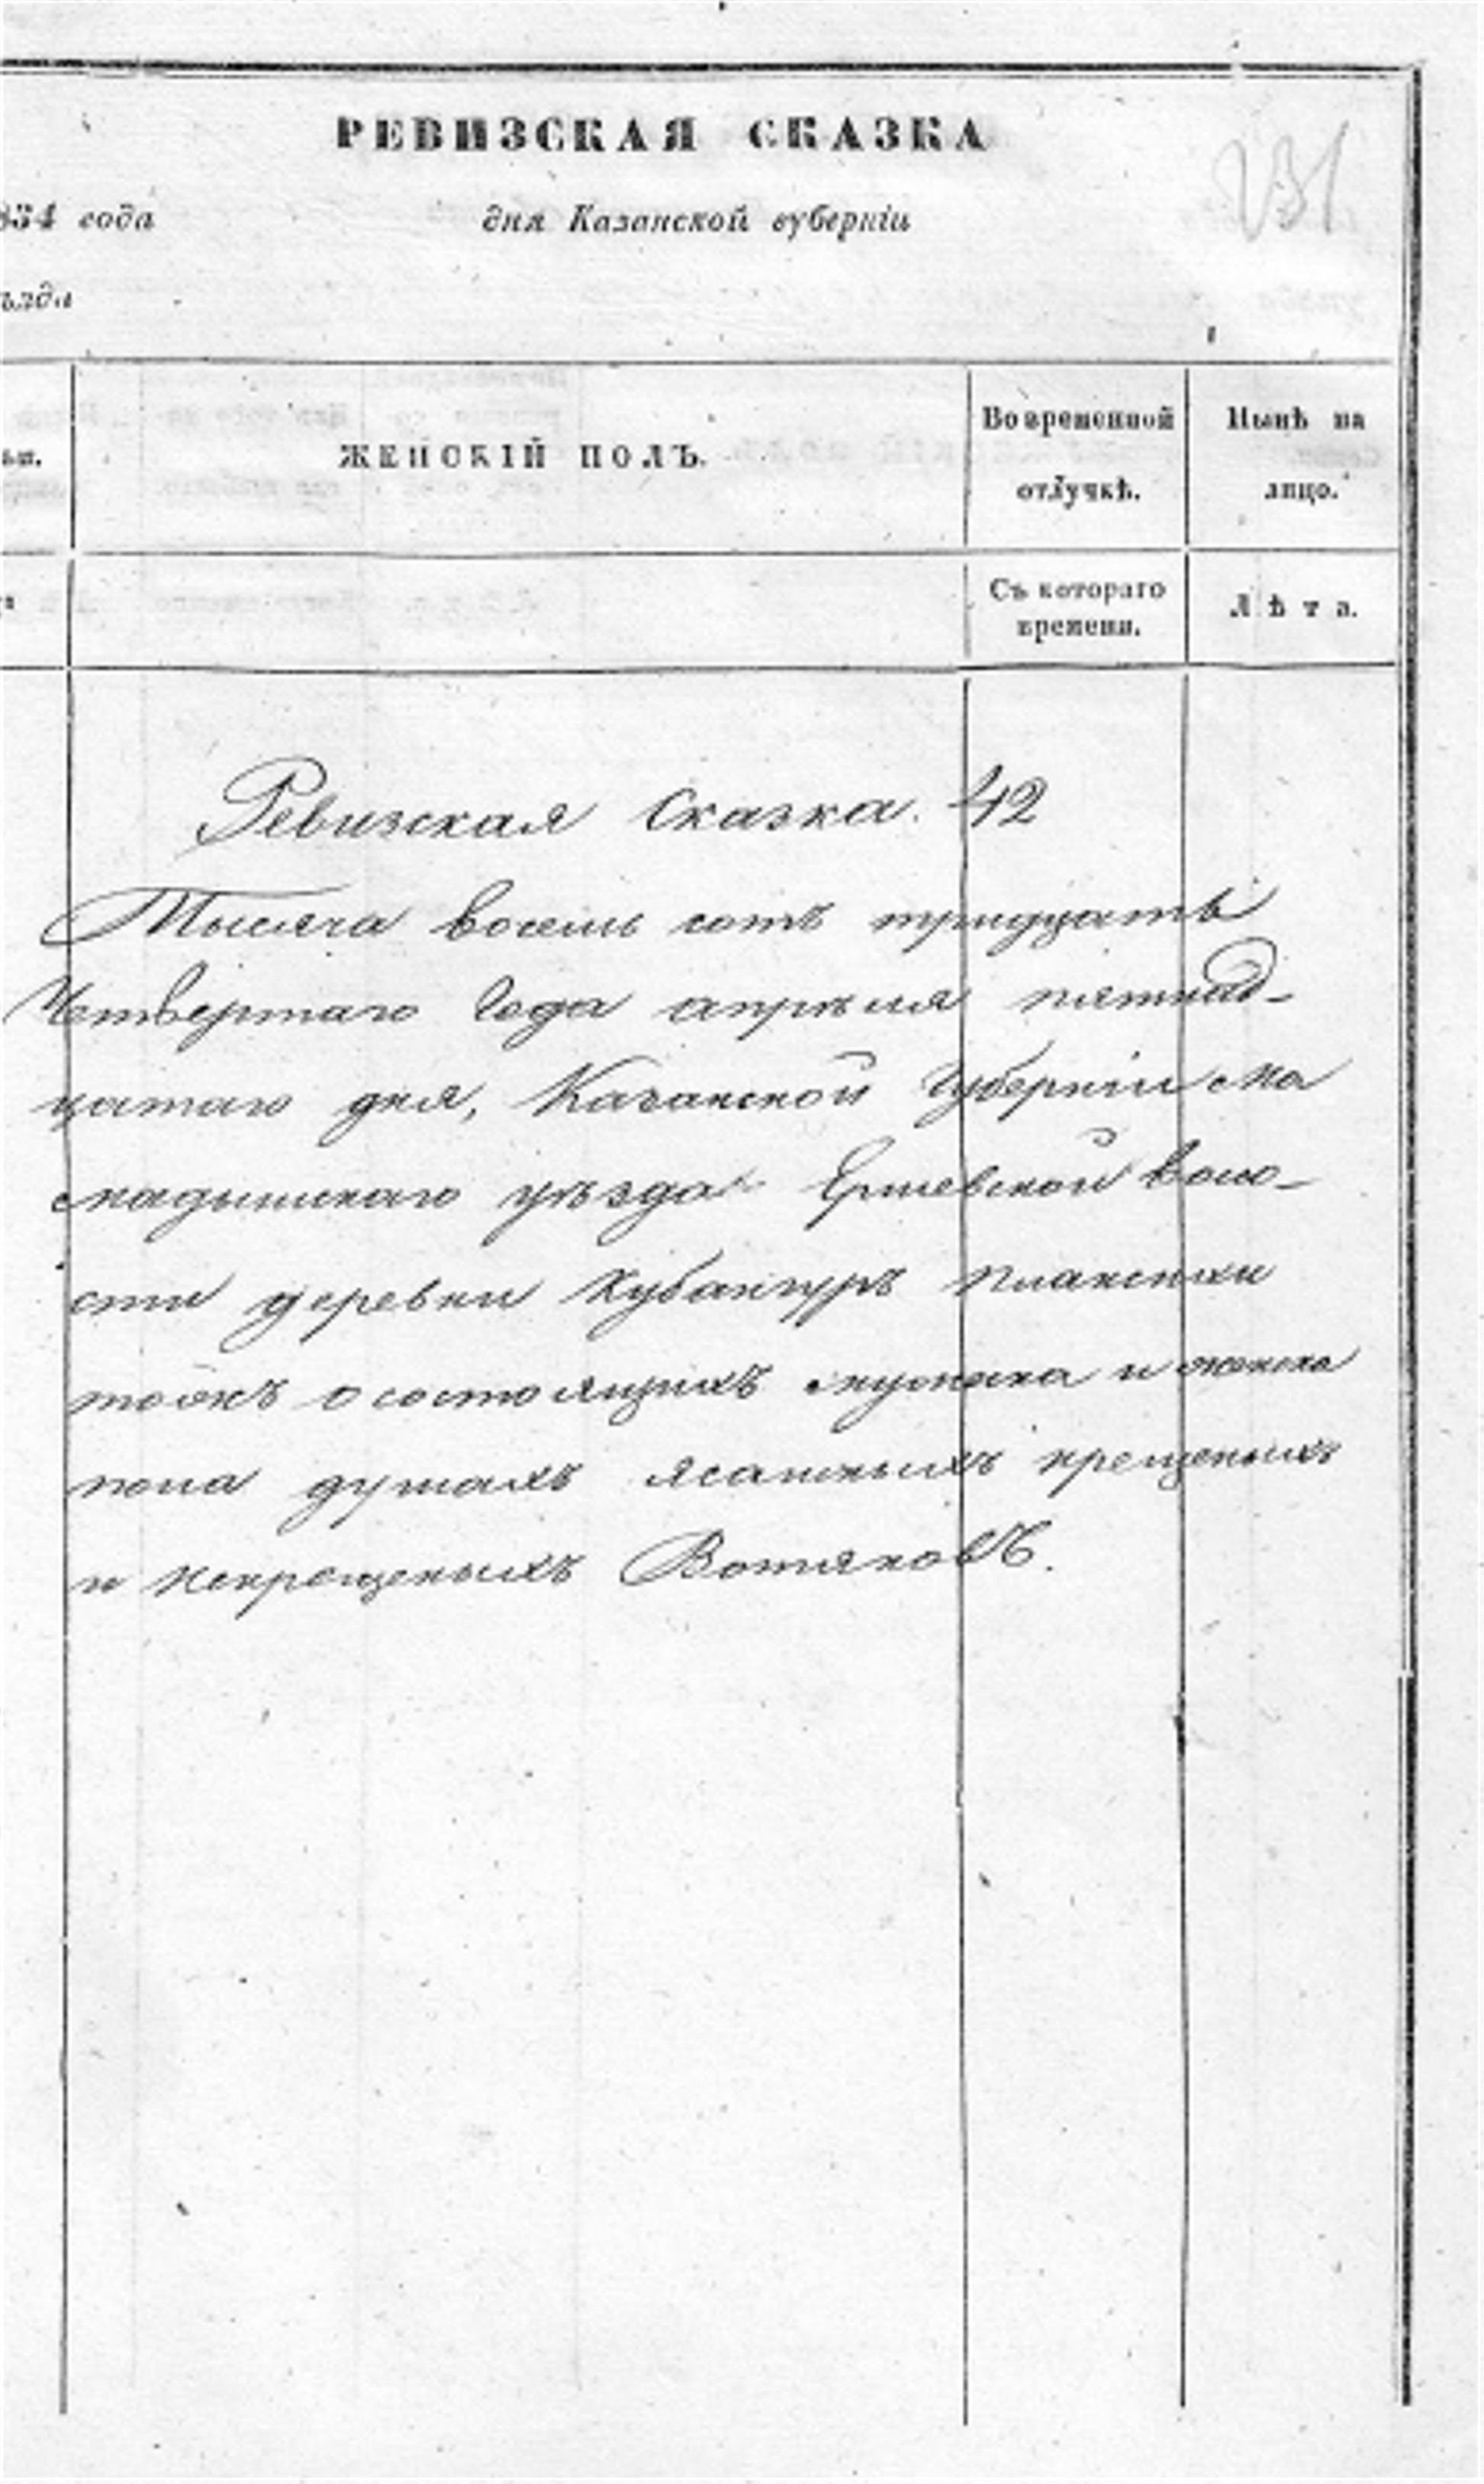 РЕВИЗСКАЯ СКАЗКА
231
834 года дня Казанской губерніи
ѣзда
ЖЕНСКІЙ ПОЛЪ.
Во временной
отлучкѣ.
Нынѣ на
лицо.
Съ котораго
времени.
Лѣта.
Ревизская Сказка. 42
Тысяча восемь сотъ тридцать
Четвертаго Года апрѣля пятнад-
цатаго дня, Казанской Губерніи Ма
мадышскаго уѣзда Ершевской воло-
сти деревни Кубангуръ
о состоящихъ мужска и женска
пола душахъ ясашныхъ крещеныхъ
и некрещеныхъ Вотяковъ.